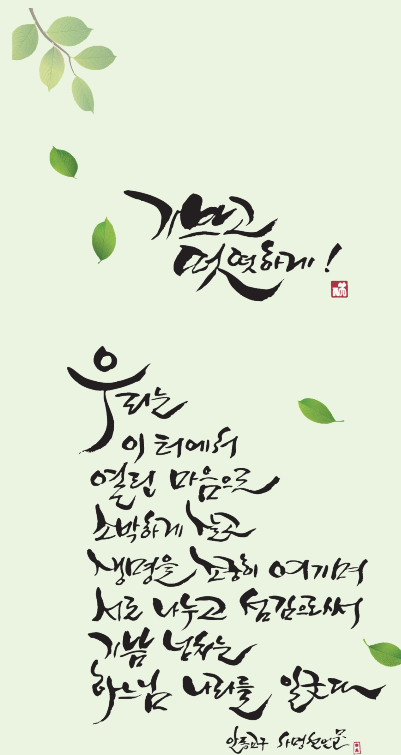 기쁘고
떳떳하게!
우리는
이 터에서
열린 마음으로
소박하게 살고
생명을 소중히 여기며
서로 나누고 섬김으로써
기쁨 넘치는
하느님 나라를 일군다
안동교구 사명선언문